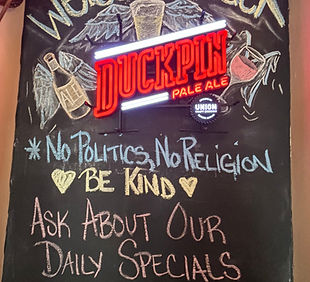 DUCKPIN
PALE ALE
UNION
* NO POLITICS, NO RELIGION
♡ BE KIND ♡
ASK ABOUT OUR
DAILY SPECIALS